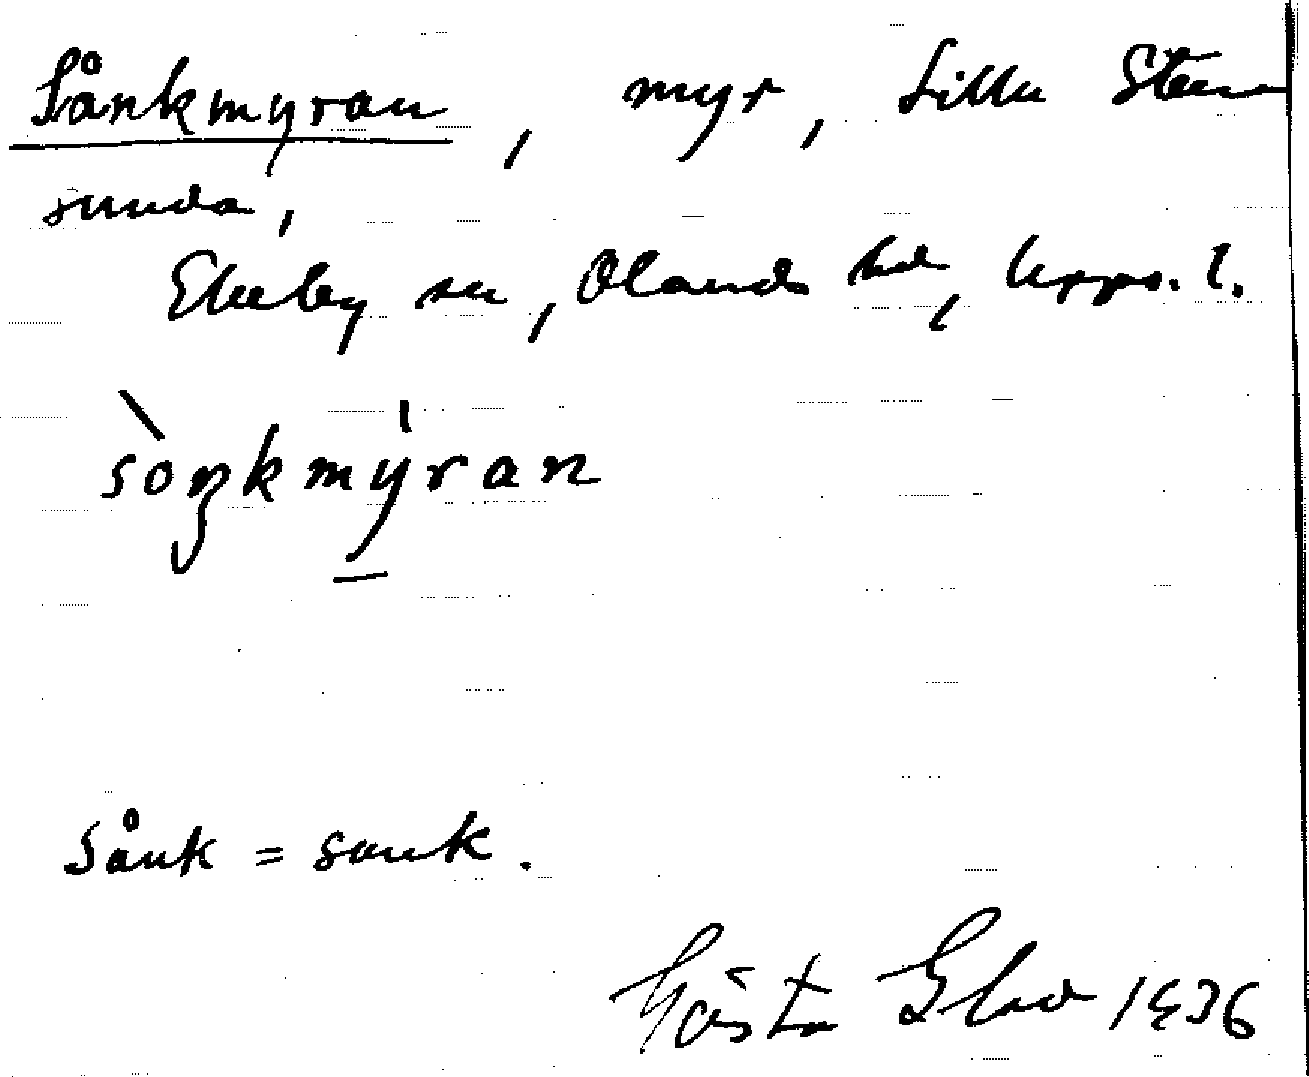 Sånkmyran, myr, Lilla Sten
sunda,
Ekeby sn, Olands hd, Upps. l.
sòŋkmýran
Sånk = sank.
Gösta Glad 1936